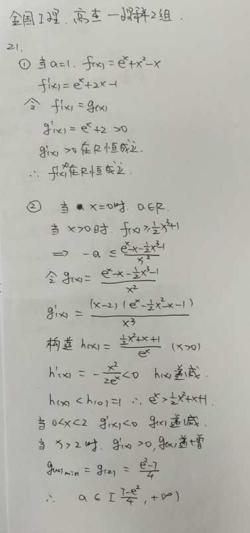 全国I理. 高杰一 保驿2组.
21.
① 当 a=1. f(x)=eˣ+x²-x
f'(x)=eˣ+2x-1
令 f'(x)=g(x)
g'(x)=eˣ+2>0
g'(x)>0在R恒成立.
∴ f'(x)在R恒成立.
② 当 x=0时. a∈R.
当 x>0时. f(x)≥½x³+1
⇒ -a ≤ (eˣ-x-½x³-1)/x²
令 g(x)= (eˣ-x-½x³-1)/x²
g'(x)= (x-2)(eˣ-½x²-x-1)/x³
构造 h(x)= (½x²+x+1)/eˣ (x>0)
h'(x)= -x²/2eˣ<0 h(x)递减.
h(x)<h(0)=1 ∴ eˣ>½x²+x+1.
当0<x<2 g'(x)<0 g(x)递减.
当 x>2时. g'(x)>0, g(x)递增
g(x)min=g(2)= (e²-7)/4
∴ a∈[(7-e²)/4, +∞)